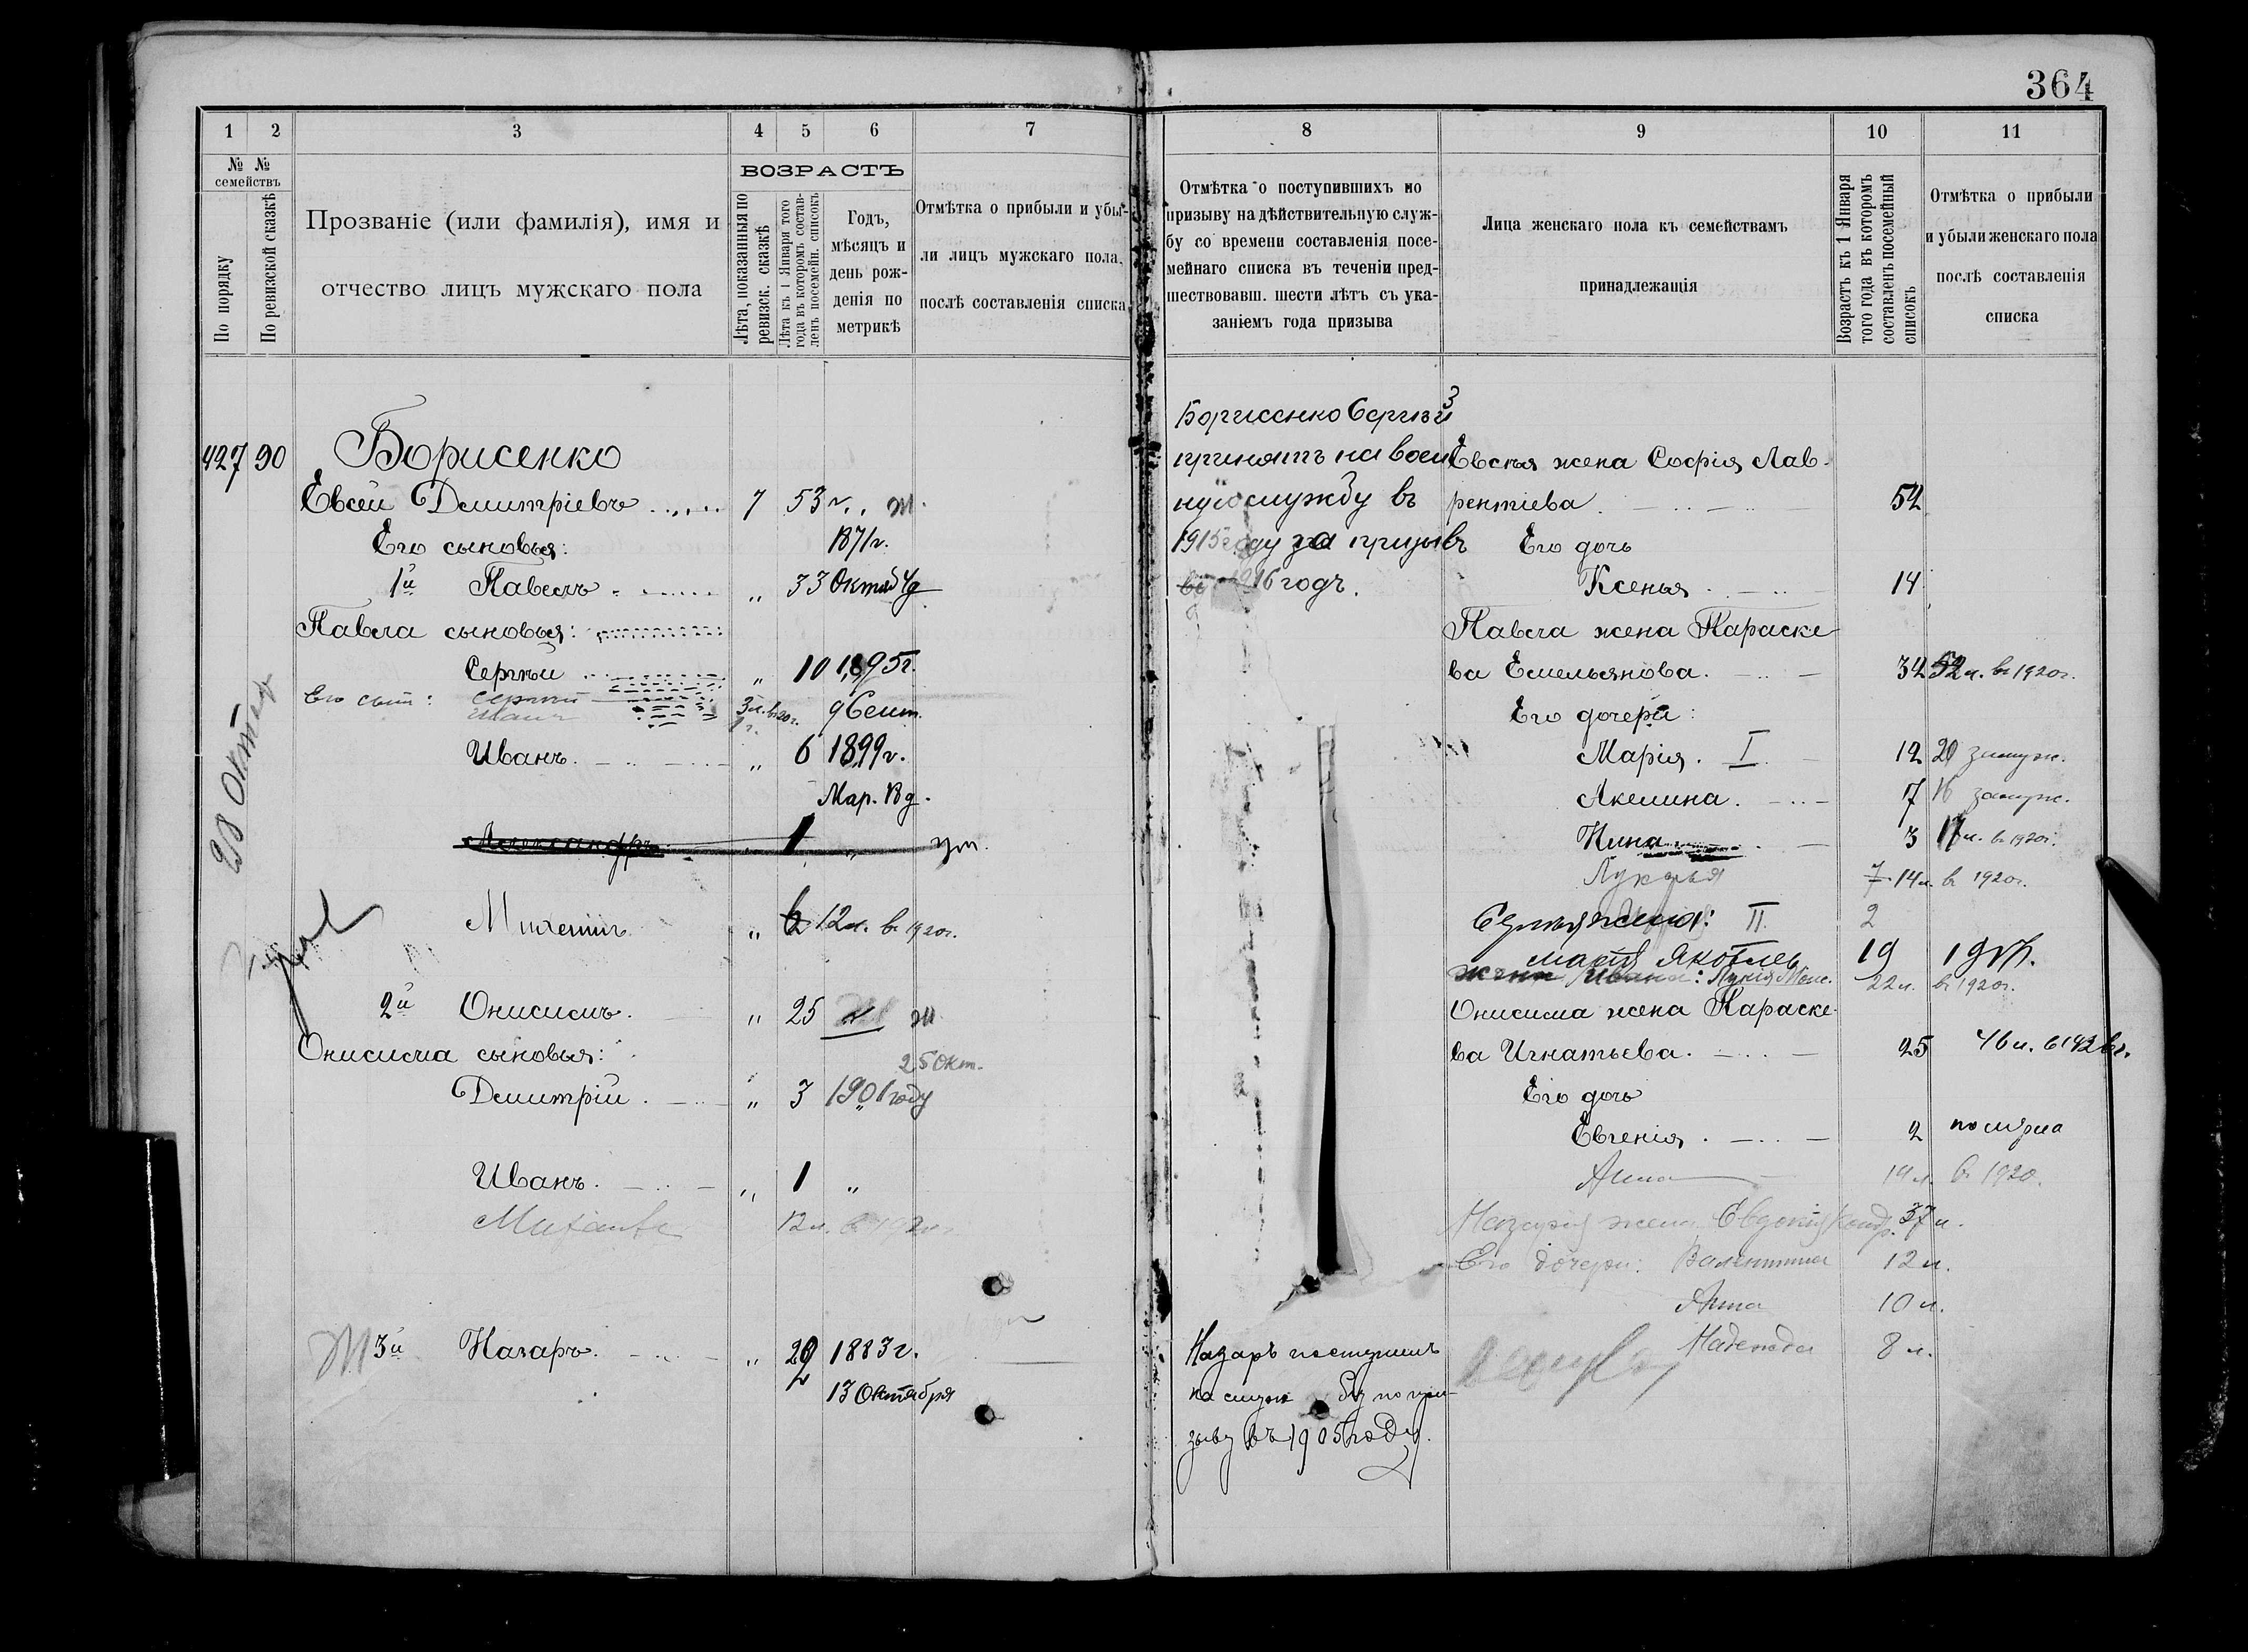 364
1 2 3 4 5 6 7
№ № семействъ
По порядку
По ревизской сказкѣ
Прозваніе (или фамилія), имя и
отчество лицъ мужскаго пола
ВОЗРАСТЪ
Лѣта, показанныя по
ревизск. сказкѣ
Лѣта къ 1 Января того
года въ которомъ состав-
ленъ посемейн. списокъ
Годъ,
мѣсяцъ и
день рож-
денія по
метрикѣ
Отмѣтка о прибыли и убы-
ли лицъ мужскаго пола,
послѣ составленія списка
427 90 Борисенко
Евсей Димитріевъ 7 53
Его сыновья: 1871г.
1й Павелъ " 33 Октяб 4д
Павла сыновья:
Сергѣй " 10 1895г.
Его сын: Сергий 3л. в 20г. 9 Сент.
Иван 1г.
Иванъ " 6 1899г.
Мар. 18д.
Александръ 1 " ум.
Михаил " 12л. в 1920г.
2й Онисимъ " 25
Онисима сыновья:
25 Окт.
Димитрій " 3 1901 году
Иванъ " 1 "
12л. в 1920г.
3й Назаръ " 1883г.
13 Октября
28 Октяб
8 9 10 11
Отмѣтка о поступившихъ по
призыву на дѣйствительную служ-
бу со времени составленія посе-
мейнаго списка въ теченіи пред-
шествовавш. шести лѣтъ съ ука-
заніемъ года призыва
Лица женскаго пола къ семействамъ
принадлежащія
Возрастъ къ 1 Января
того года въ которомъ
составленъ посемейный
списокъ
Отмѣтка о прибыли
и убыли женскаго пола
послѣ составленія
списка
Борисенко Сергѣй
принятъ на воен
ную службу въ
1915 году за призывъ
1916 годъ.
Евсѣя жена Софія Лав-
рентіева 52
Его дочь
Ксенья 14
Павла жена Параске-
ва Емельянова 34 52л. в 1920г.
Его дочери:
Марія I 12 20 замуж.
Акелина 7 16 замуж.
Нина 3 17л. в 1920г.
Лукерья 7 14л. в 1920г.
Сергѣя жена: II 2
Марія Яковлев 19 19
жена Ивана: Лукія 22л. в 1920г.
Онисима жена Параске-
ва Игнатьева 25 46л.
Его дочь
Евгенія 2 померла
Анна 19л. в 1920.
Назария жена Евдокия Конд. 37л.
Его дочери: Валентина 12л.
Анна 10л.
Надежда 8л.
Назаръ поступилъ
на служ бу по при-
зыву въ 1905 году.